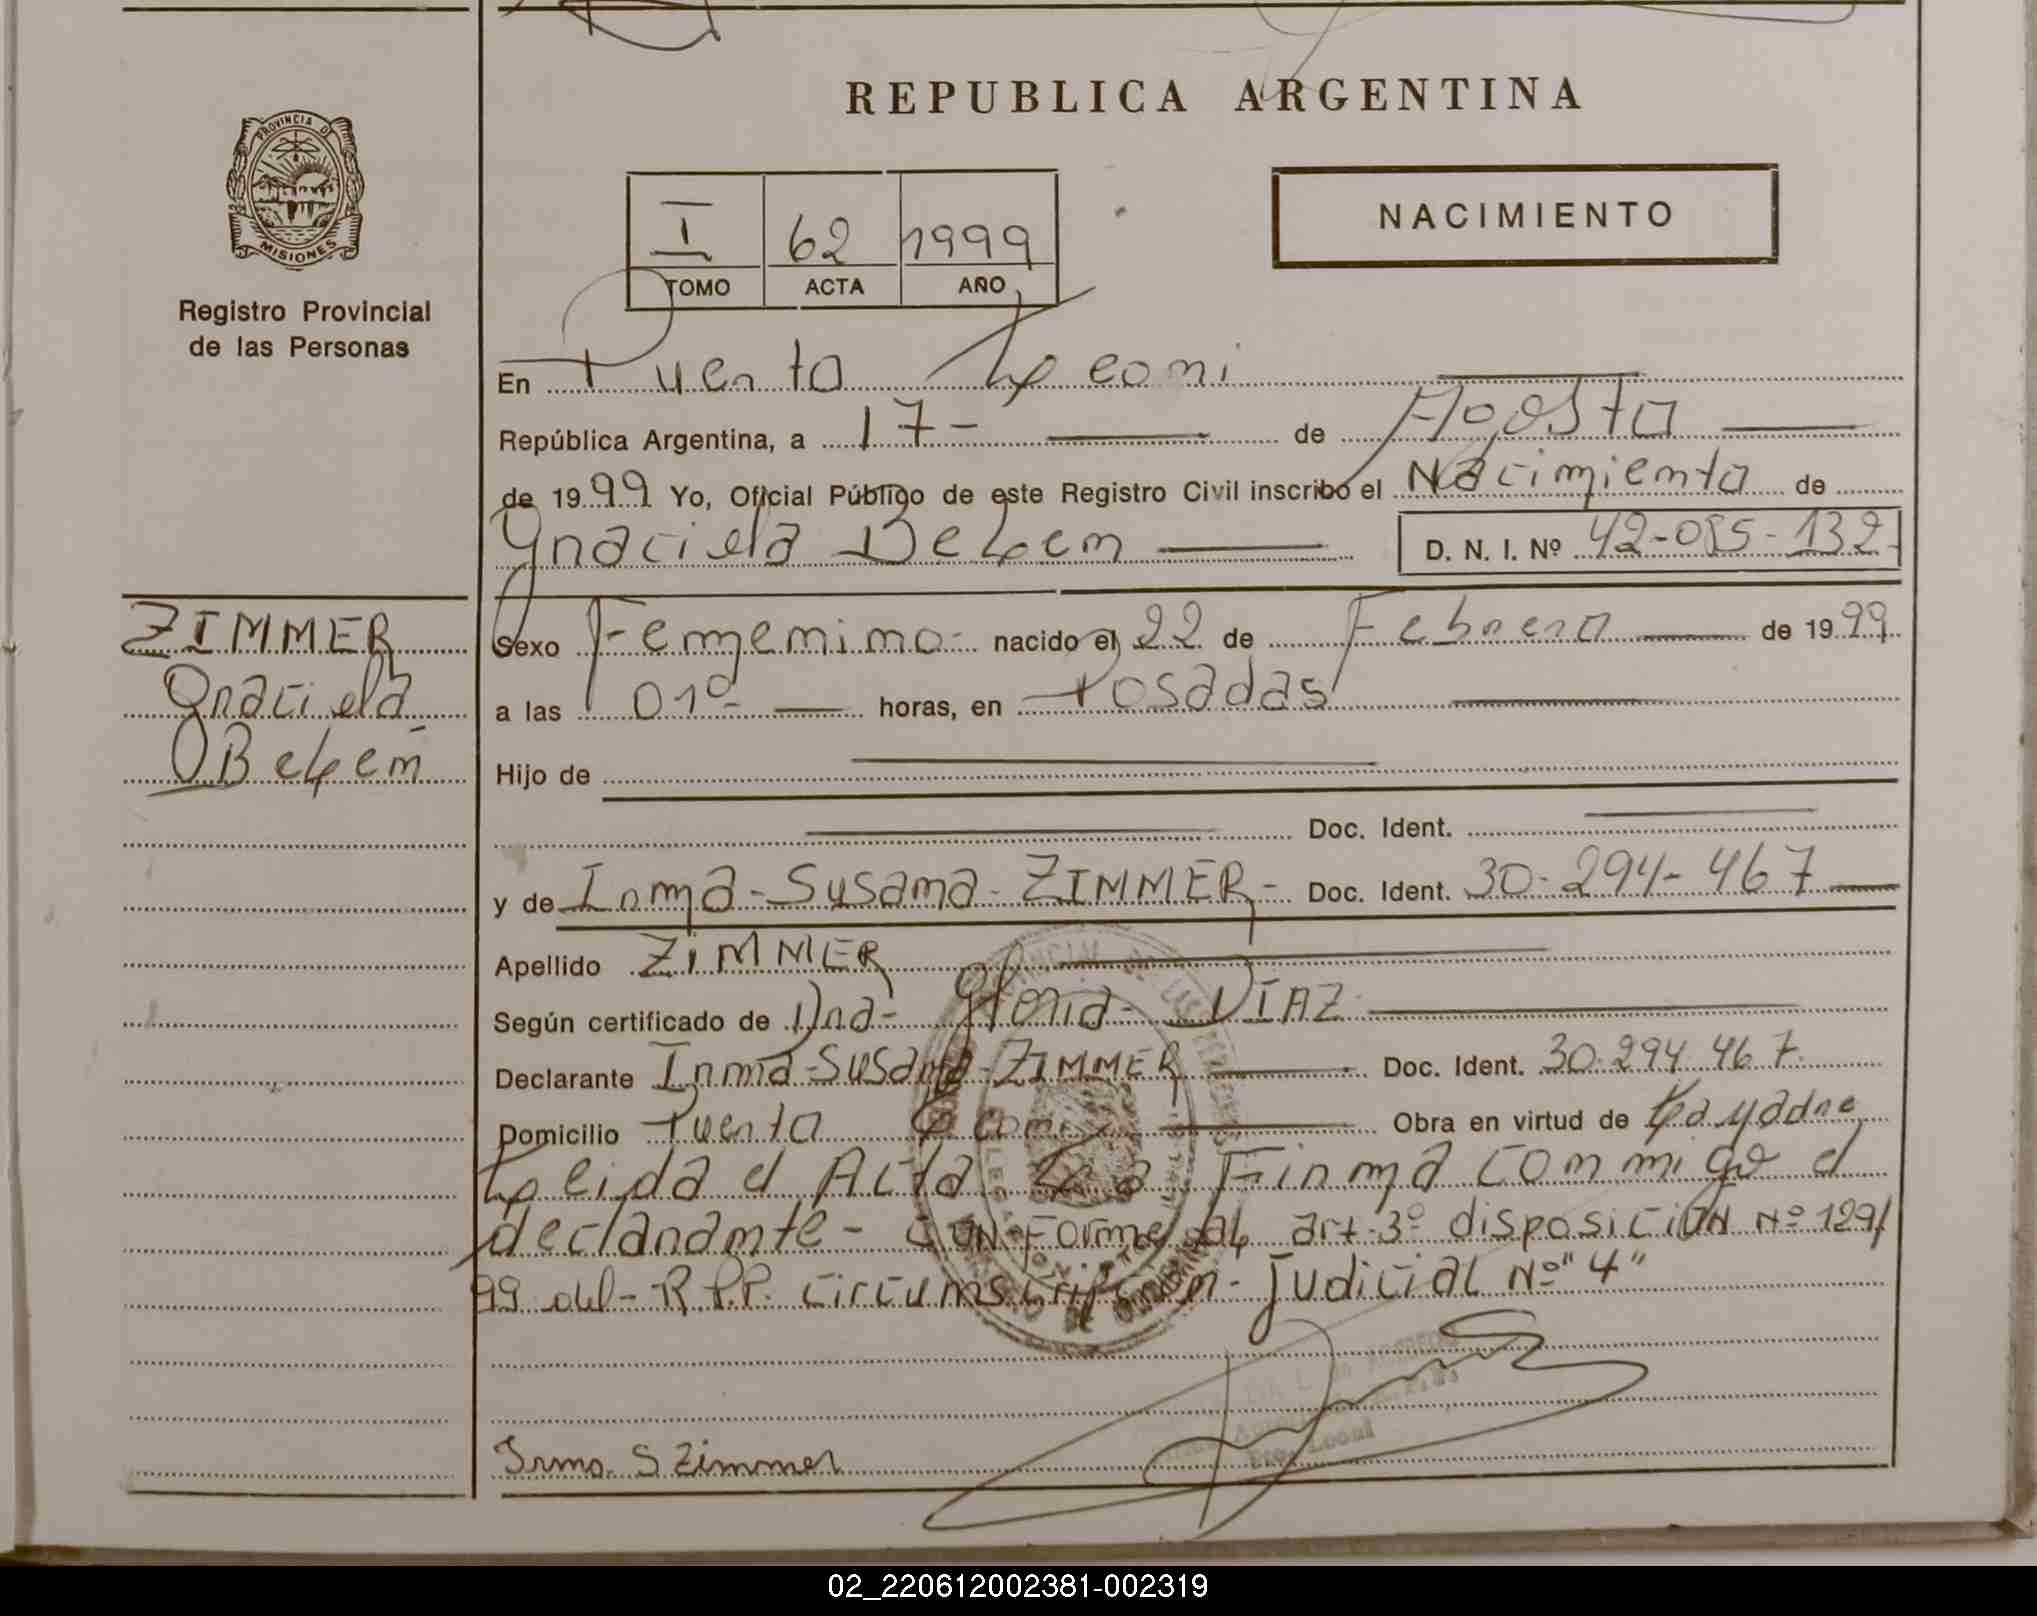 REPUBLICA ARGENTINA
PROVINCIA DE
MISIONES
Registro Provincial
de las Personas
I 62 1999
TOMO ACTA AÑO
NACIMIENTO
En Puerto Leoni
República Argentina, a 17- de Agosto
de 1999 Yo, Oficial Público de este Registro Civil inscribo el Nacimiento de
Graciela Belem D. N. I. Nº 42-085-132
ZIMMER
Graciela
Belem
Sexo Femenino- nacido el 22 de Febrero de 1999
a las 01º- horas, en Posadas
Hijo de
Doc. Ident.
y de Irma-Susana-ZIMMER- Doc. Ident. 30-294-467
Apellido ZIMMER
Según certificado de Dra- Gloria- DIAZ
Declarante Irma-Susana-ZIMMER Doc. Ident. 30.294.467.
Domicilio Puerto Leoni Obra en virtud de La madre
Leida el Acta La Firma conmigo el
declarante- CONForme al art-3º disposiciON Nº 129/
99 del-R.P.P. circunscripcion-Judicial Nº "4"
Irma. S Zimmer
Local
02_220612002381-002319